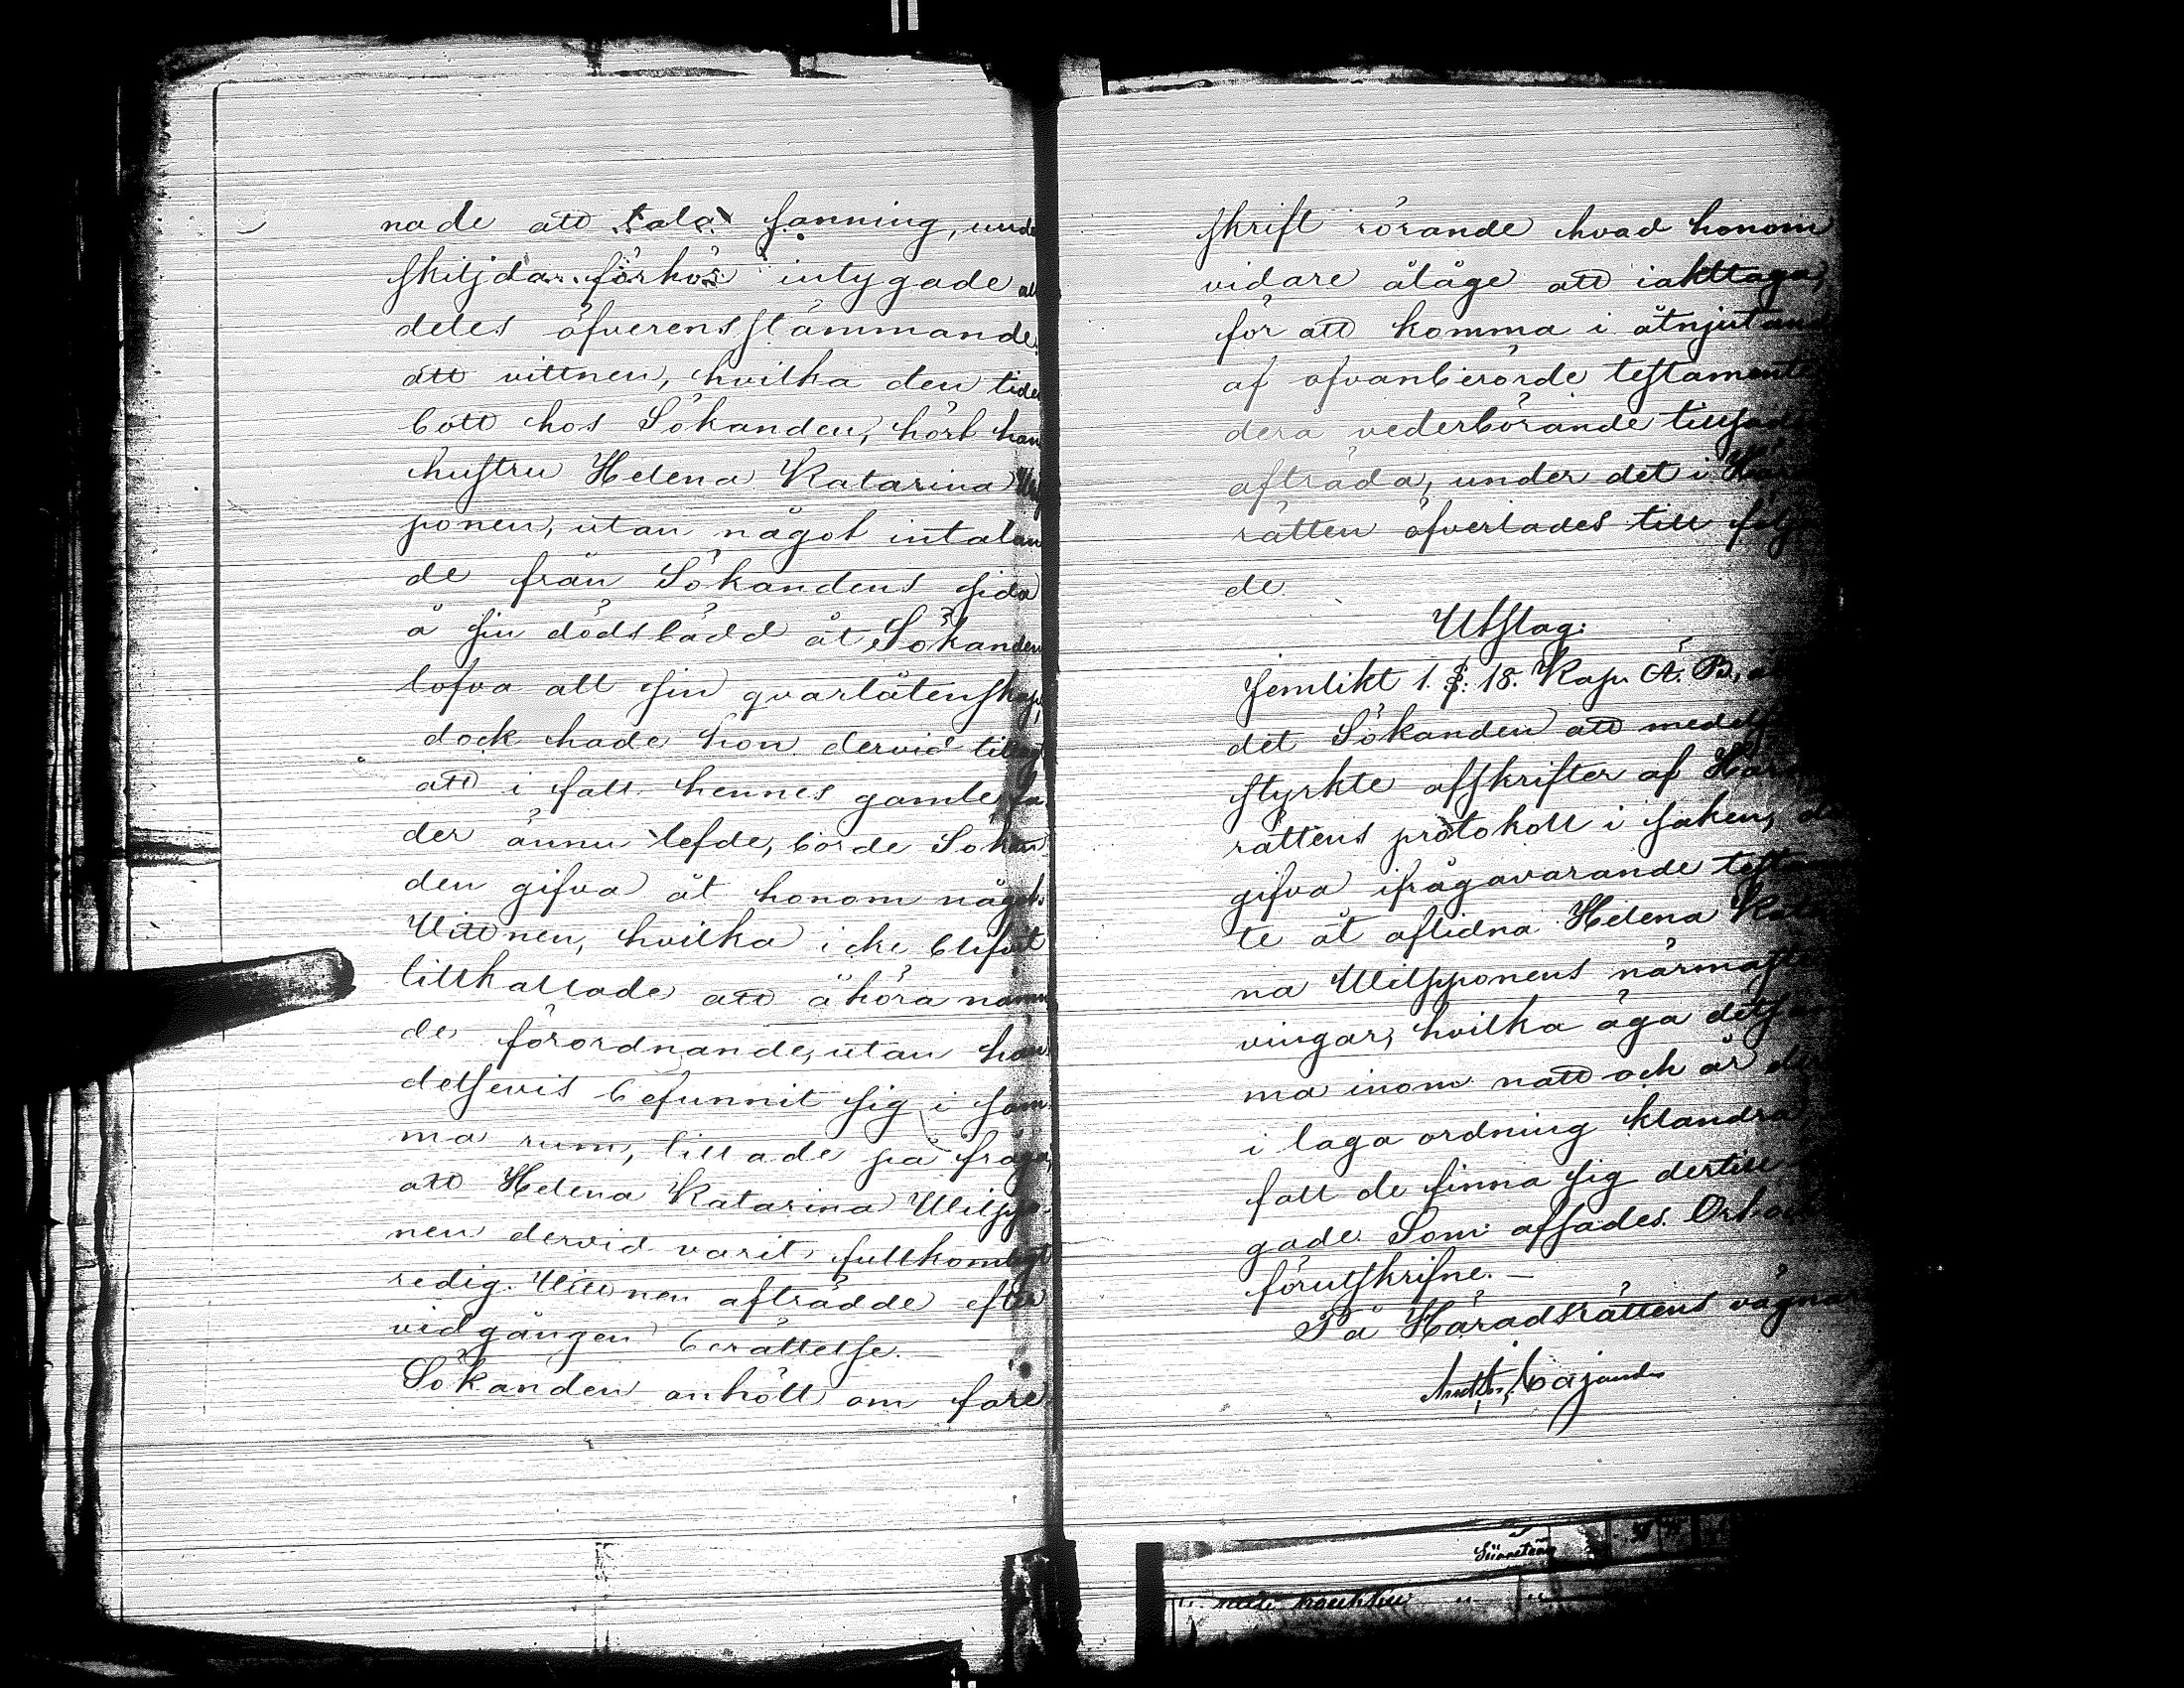 nade att tala sanning, unde
skiljda förhör intygade all
deles öfverensstämmande
att vittnen, hvilka den tiden
bott hos Sökanden, hört han
hustru Helena Katarina Wilp
ponen, utan något intalan
de från Sökandens sida
å sin dödsbädd åt Sökanden
lofva all sin qvarlåtenskap,
dock hade hon dervid tillagt
att i fall hennes gamle fa
der ännu lefde, borde Sökan
den gifva åt honom något.
Vittnen, hvilka icke blifvit
tillkallade att åhöra nämn
de förordnande, utan hän
delsevis befunnit sig i sam
ma rum, tillade på fråga,
att Helena Katarina Wilppo
nen dervid varit fullkomligt
redig. Vittnen afträdde efter
vidgången berättelse.
Sökanden anhöll om före
skrift rörande hvad honom
vidare ålåge att iakttaga,
för att komma i åtnjutand
af ofvanberörde testamente
dera vederbörande tillsades
afträda, under det i Härads
rätten öfverlades till följan
de
Utslag:
Jemlikt 1. §. 18. Kap. Ä. B. 
det Sökanden att medelst
styrkte afskrifter af Härads
rättens protokoll i saken, del
gifva ifrågavarande testamen
te åt aflidna Helena Kata
na Wilpponens närmaste
vingar, hvilka äga detsam
ma inom natt och år der
i laga ordning klandra,
fall de finna sig dertill
gade. Som afsades. Ort och
förutskrifne. —
På Häradsrättens vägnar
Cajander
Matti